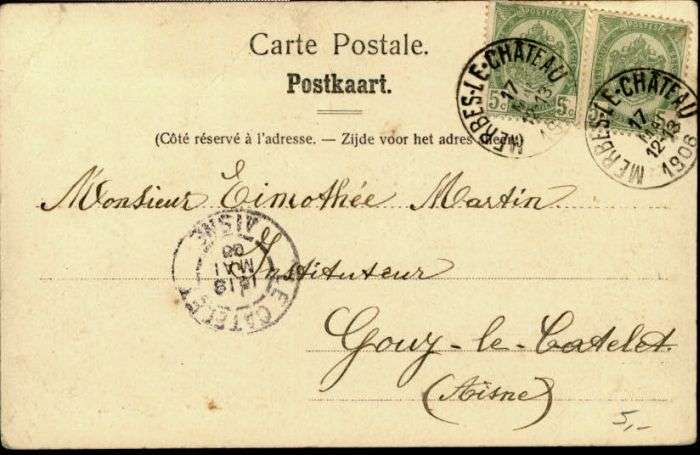 Carte Postale.
Postkaart.
(Côté réservé à l'adresse. — Zijde voor het adres
5c 5c
MERBES-LE-CHÂTEAU
17
12-13
MERBES-LE-CHÂTEAU
17
MAI
12-13
1906
Monsieur Timothée Martin
Instituteur
Gouy-le-Catelet.
(Aisne)
LE CATELET
AISNE
MAI
5,-